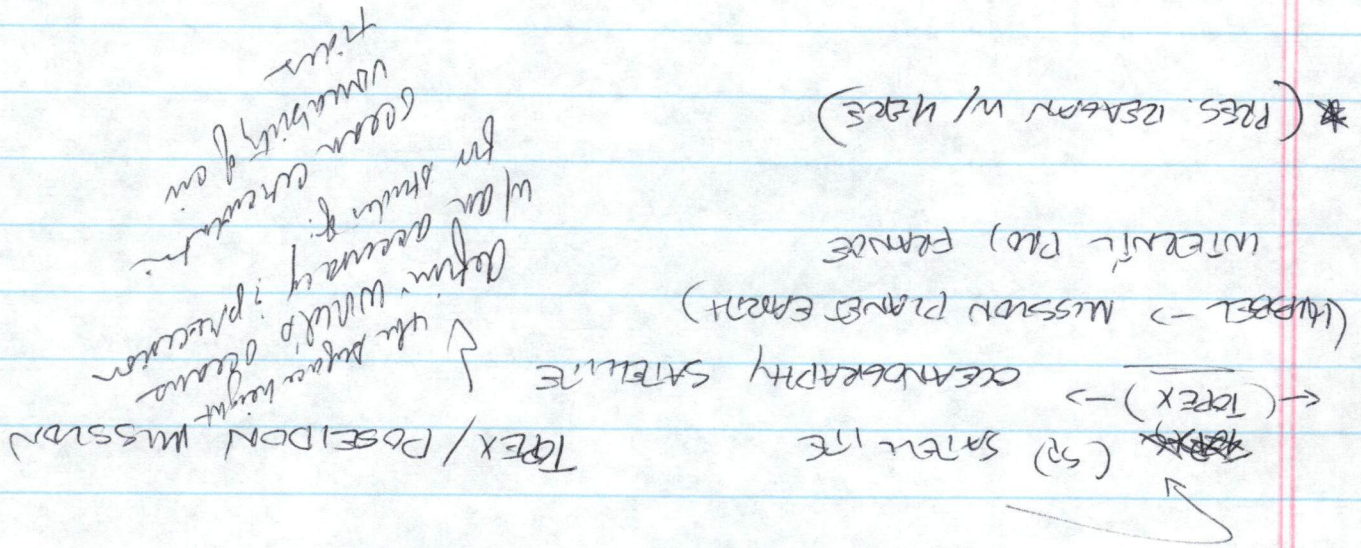 (SP) SATELLITE
TOPEX / POSEIDON MISSION
← (TOPEX) → OCEANOGRAPHY SATELLITE
(HUBBEL → MISSION PLANET EARTH)
INTERNT'L PRO) FRANCE
* (PRES. REAGAN W/ HERE)
the surface height
world's oceans
w/ an accuracy & precision
for studies of:
ocean
variability of our
tides